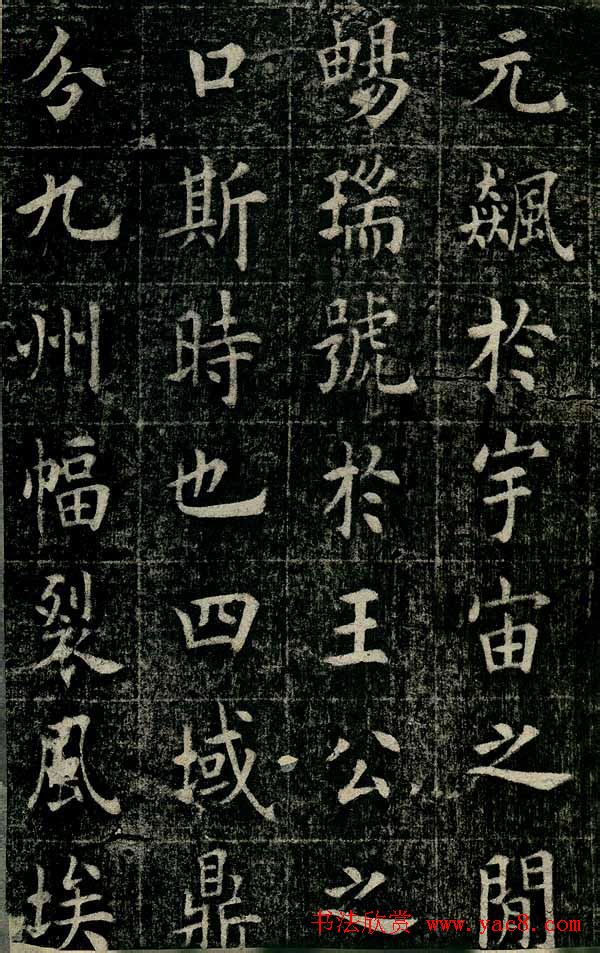 元飆於宇宙之間
暢瑞號於王公之
口斯時也四域鼎
分九州幅裂風埃
书法欣赏 www.yac8.com